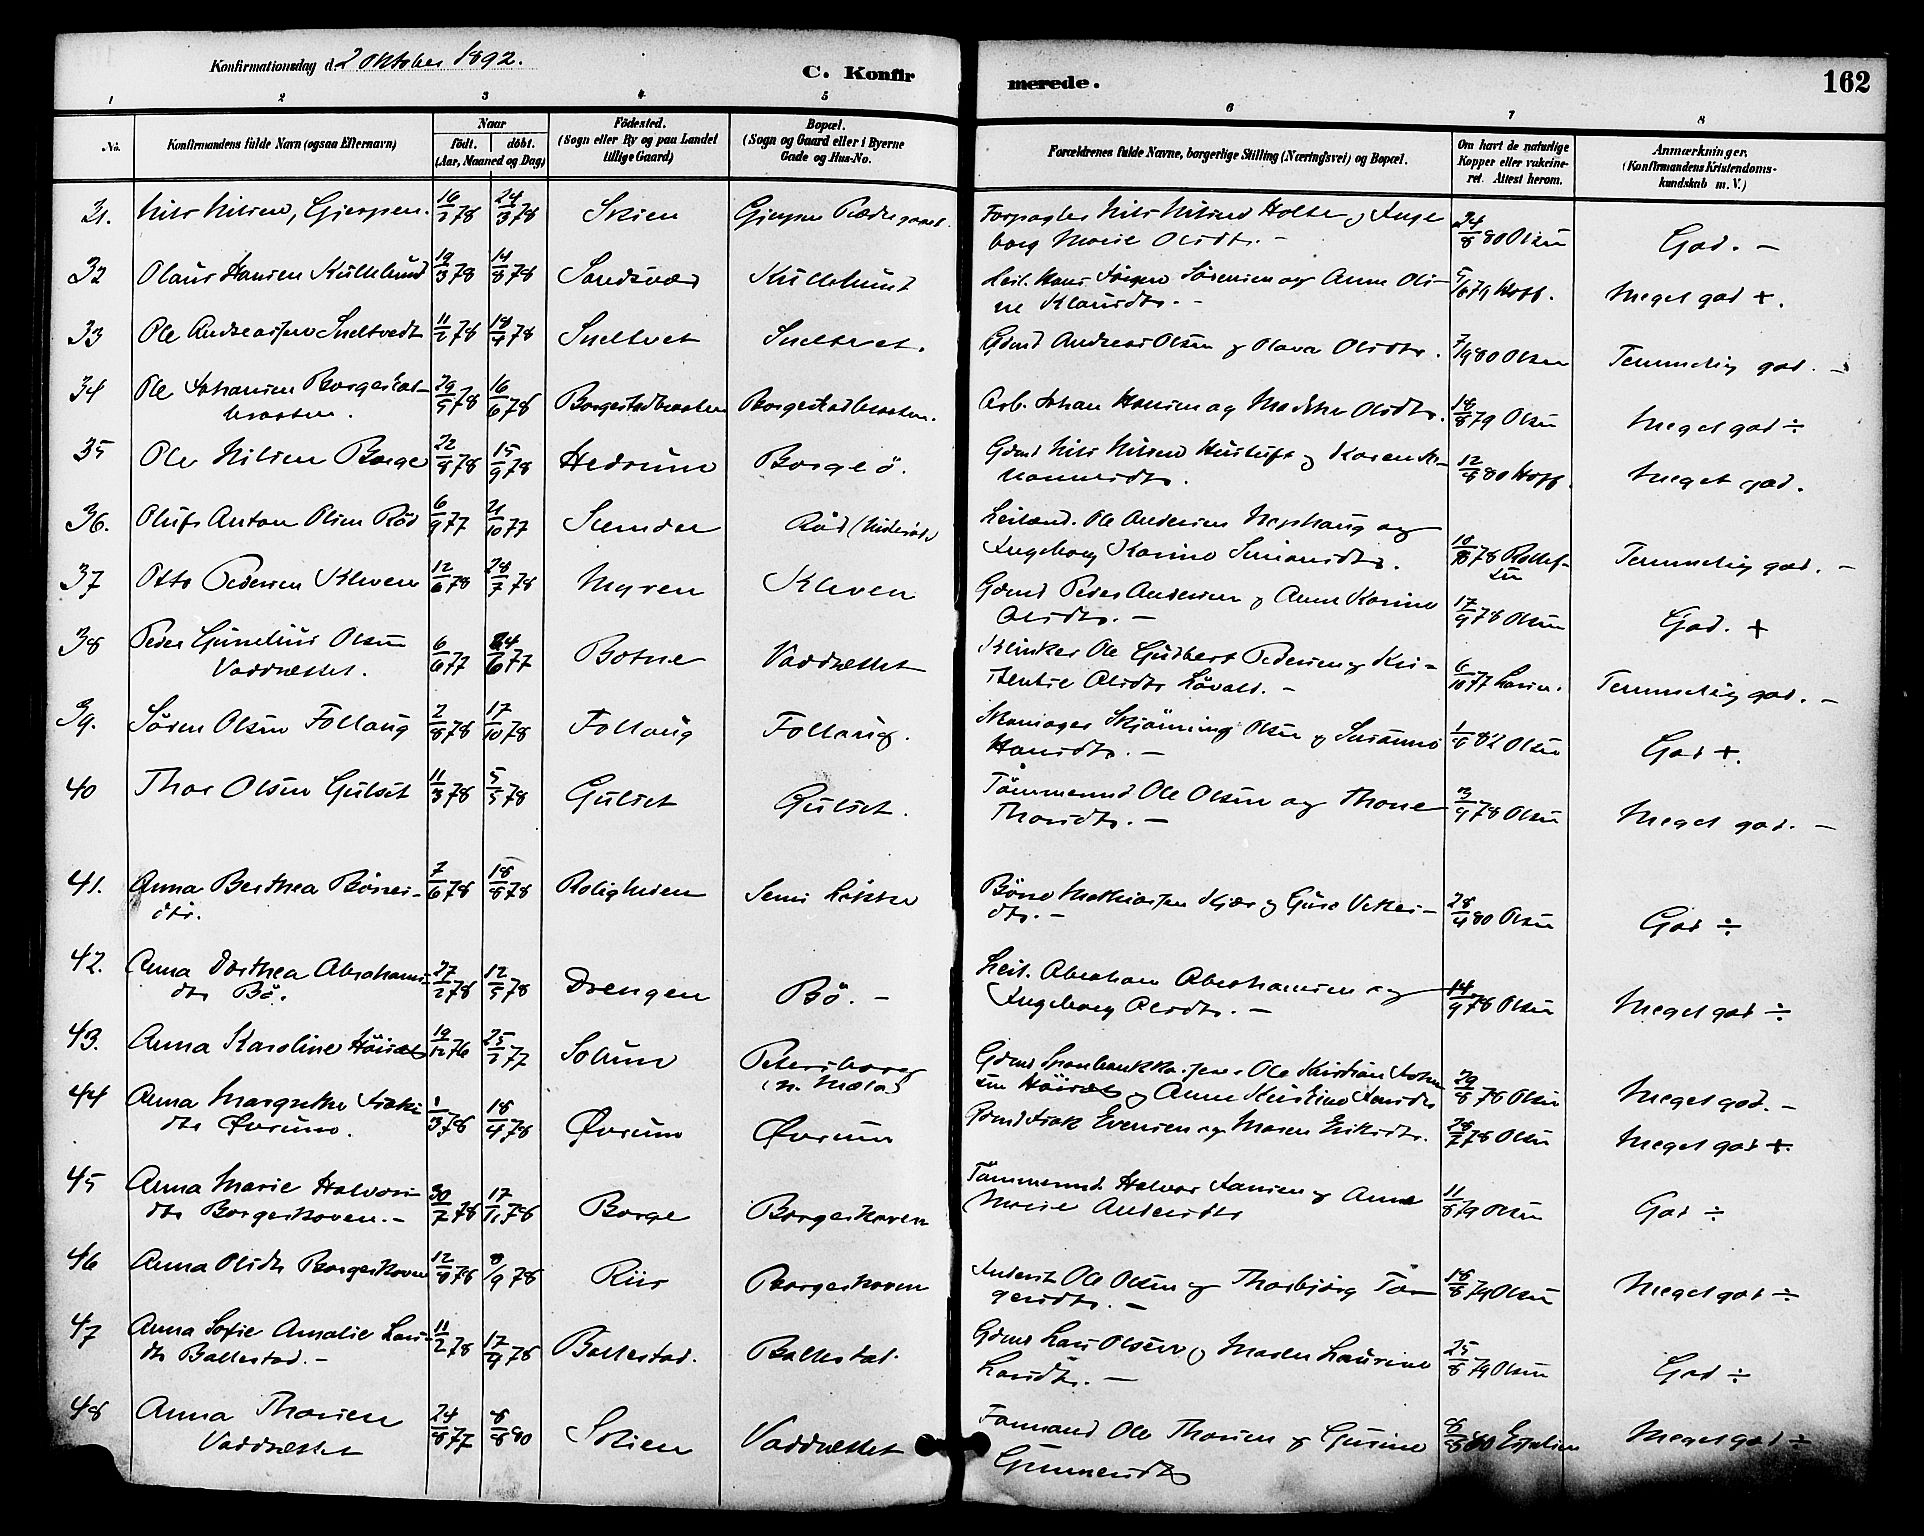 Konfirmationsdag d. 2 Oktober 1892.
C. Konfirmerede.
162
1 2 3 4 5 6 7 8
No.
Konfirmandens fulde Navn (ogsaa Efternavn)
Naar
födt. döbt.
(Aar, Maaned og Dag)
Födested.
(Sogn eller By og paa Landet
tillige Gaard)
Bopæl.
(Sogn og Gaard eller i Byerne
Gade og Hus-No.
Forældrenes fulde Navne, borgerlige Stilling (Næringsvei) og Bopæl.
Om havt de naturlige
Kopper eller vakcine-
ret. Attest herom.
Anmærkninger.
(Konfirmandens Kristendoms-
kundskab m. V.)
31. Nils Nilsen, Gjerpen. 24/3 78 Skien Gjerpen Forpagter Nils Nilsen Holte og Inge
borg Marie Olsdtr. - 24/8 80 Olsen God. -
32 Olaus Hansen Kullebund 19/3 78 14/8 78 Sandsvær Kullebund Leil. Hans Jörgen Sörensen og Anne Oli-
ne Klausdtr. - Hoff. Meget god +.
33 Ole Andreassen Sneltvedt 11/2 78 14/4 78 Sneltvet Sneltvet. Gdmd Andreas Olsen og Olava Olsdtr. 7/9 80 Olsen Temmelig god. -
34 Ole Johansen Borgestad-
braaten. 29/5 78 16/6 78 Borgestadbraaten Borgestadbraaten. Arb. Johan Hansen og Olsdtr. 18/8 79 Olsen Meget god ÷
35 Ole Nilsen Borge 22/8 78 15/9 78 Hedrum Borgeö. Gdmd Nils Nilsen og Karen
12/8 80 Hoff. Meget god.
36. Oluf Anton Olsen Röd 6/9 77 21/10 77 Slemdal Röd Leilænd. Ole Andersen og
Ingeborg Karine Simonsdtr. 78 Temmelig god. -
37 Otto Pedersen Kleven 12/6 78 28/7 78 Myren Kleven Gdmd Peder Andersen og Anne Karine
Olsdtr. - 17/9 78 Olsen God. +
38 Peder Gunelius Olsen
Vaddrættet. 6/6 77 24/6 77 Botne Vaddrættet Klinker Ole Gudbert Pedersen og
Olsdtr - 6/10 77 Temmelig god. -
39. Sören Olsen Follaug 2/8 78 17/10 78 Follaug Follaug. Skjönning Olsen og Susanne
Hansdtr. - 82 Olsen God +.
40 Thor Olsen Gulset 11/3 78 5/5 78 Gulset Gulset. Tömmermd Ole Olsen og Thone
Thorsdtr. - 3/9 78 Olsen Meget god. -
41. Anna Berthea Börres-
dtr. 7/6 78 18/8 78 Roligheden Börre Mathiassen Kjær og
dtr. - 28/4 80 Olsen God ÷
42. Anna Dorthea Abrahams-
dtr Bö. 27/2 78 12/5 78 Drengen Bö. - Leil. Abraham Abrahamsen og
Ingeborg Olsdtr. - 14/9 78 Olsen Meget god ÷
43. Anna Karoline Höisæt 19/12 76 25/2 77 Solum Petersborg
(n. Mæla) Gdmd Ole Kristian
Höisæt og Anne Kristine 29/8 78 Olsen Meget god. -
44 Anna Margrethe Isaks
dtr Øvrum. 1/3 78 18/4 78 Øvrum Øvrum Gdmd Isak Evensen og Maren Eriksdtr. 28/7 78 Olsen Meget god +.
45 Anna Marie Halvors-
dtr Borgeskoven. - 30/7 78 17/11 78 Borge Borgeskoven Tömmermd. Halvor Jansen og Anne
Marie Andersdtr 11/8 79 Olsen God ÷
46 Anna Olsdtr Borgeskoven 12/8 78 8/9 78 Riis Borgeskoven Inderst Ole Olsen og Thorbjörg Tor-
gersdtr. - 18/8 79 Olsen Meget god ÷
47 Anna Sofie Amalie Lars-
dtr Ballestad. - 11/2 78 17/4 78 Ballestad. Ballestad. Gdmd Lars Olsen og Maren Laurine
Larsdtr. - 25/8 79 Olsen God ÷
48 Anna Thorsen
Vaddrættet 24/8 77 8/8 80 Skien Vaddrættet Formand Ole Thorsen og Gurine
Gunnersdtr 8/8 80 Meget god ÷